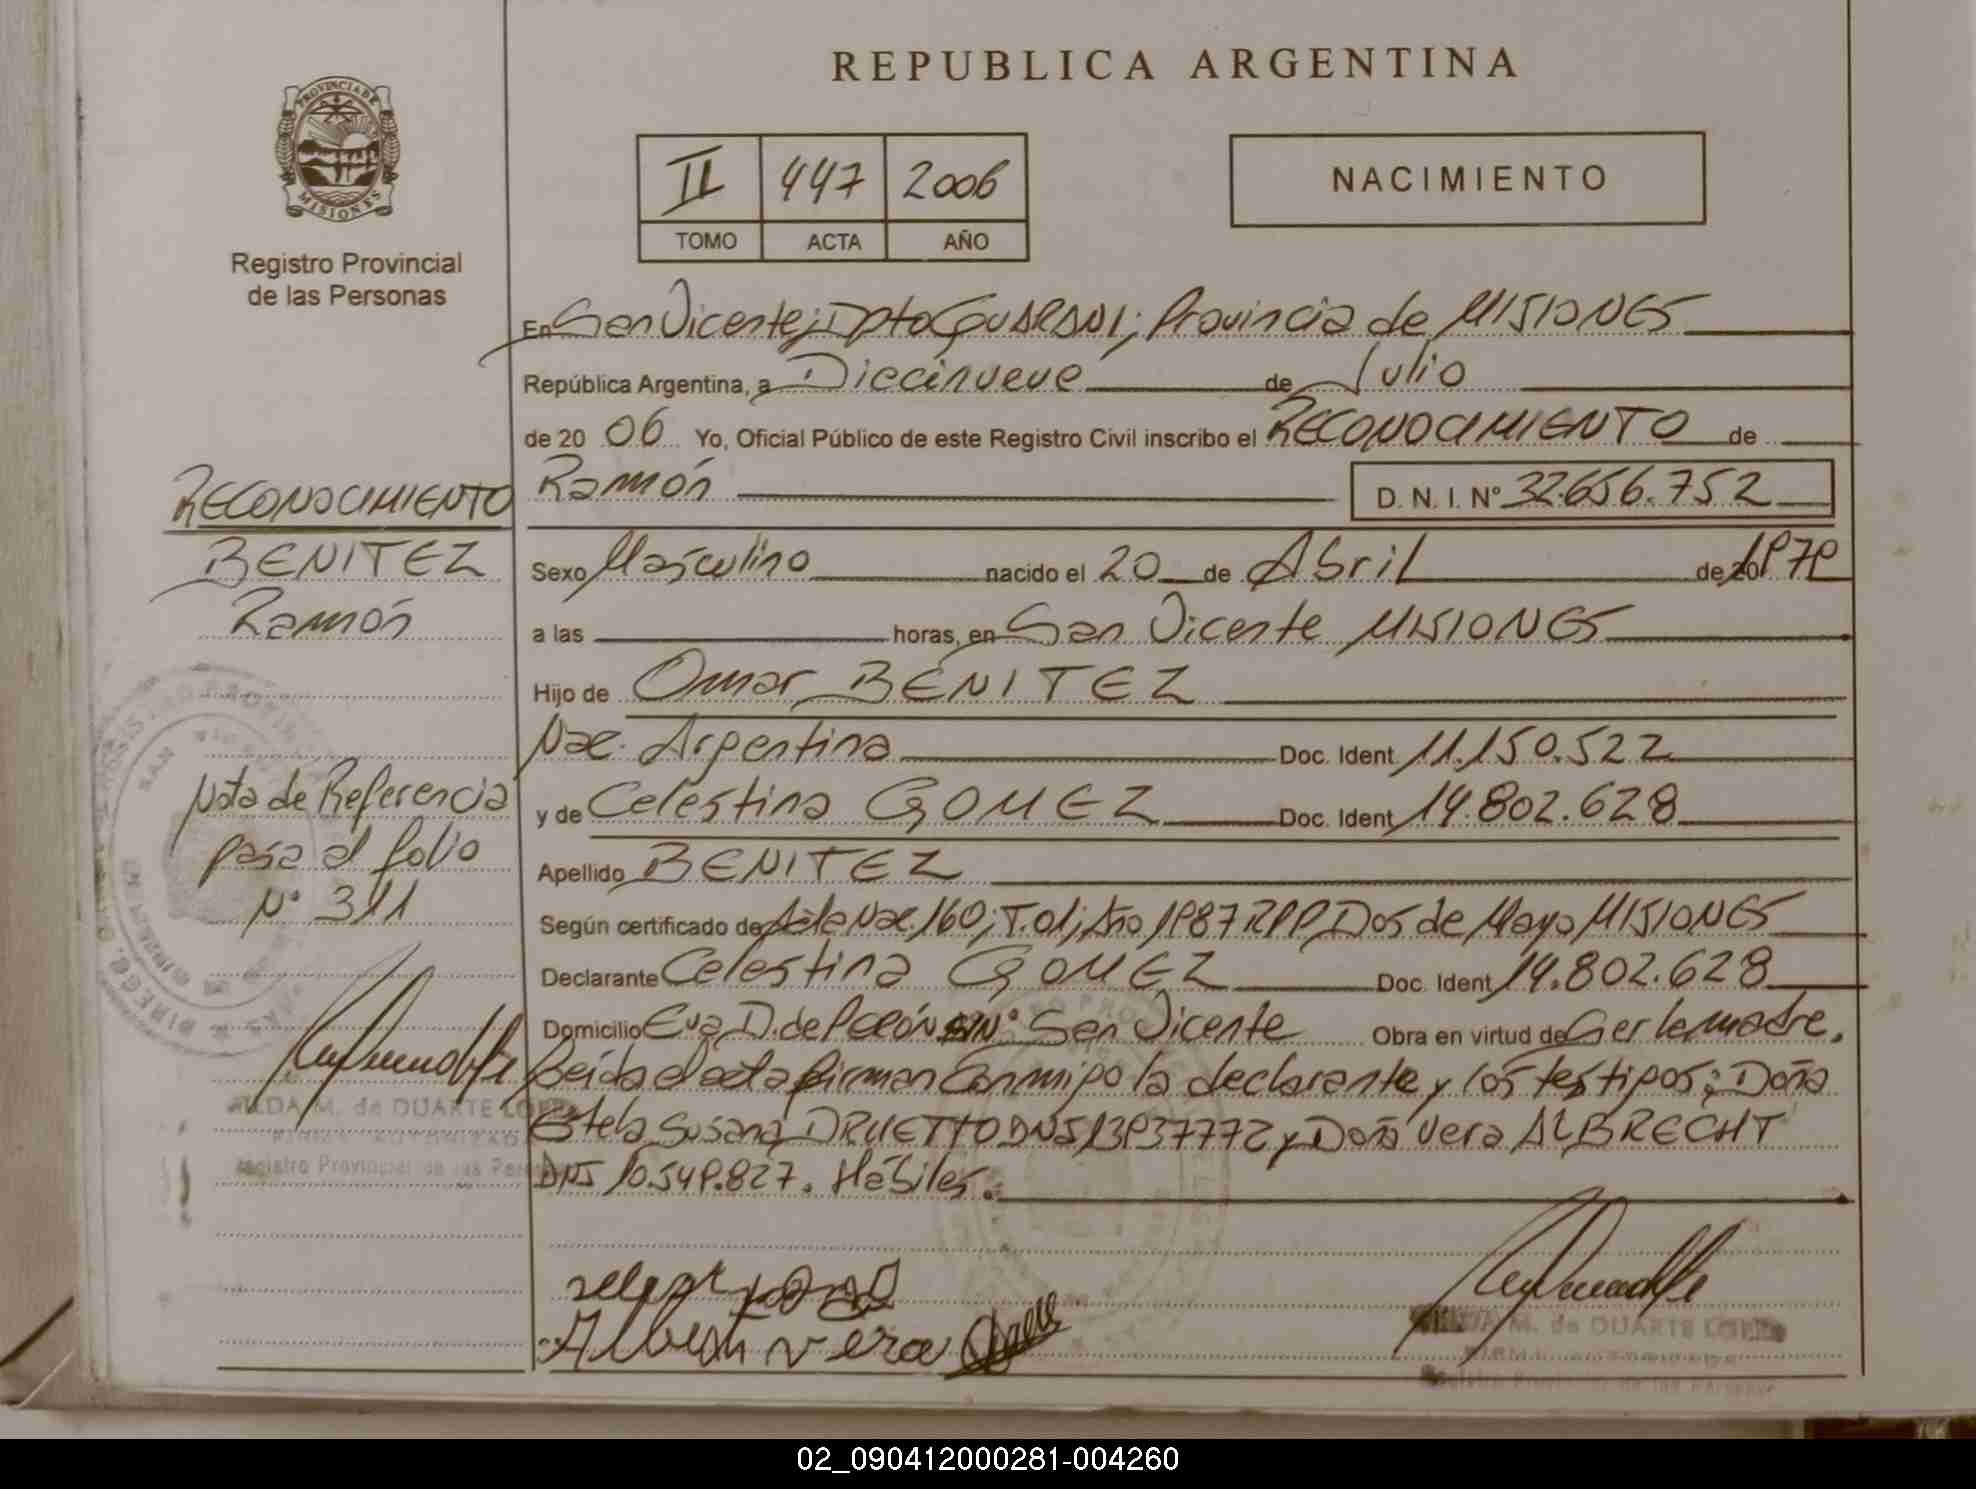 REPUBLICA ARGENTINA
PROVINCIA DE
MISIONES
Registro Provincial
de las Personas
II 447 2006
TOMO ACTA AÑO
NACIMIENTO
En San Vicente, Dpto GUARANI; Provincia de MISIONES
República Argentina, a Diecinueve de Julio
de 20 06 Yo, Oficial Público de este Registro Civil inscribo el RECONOCIMIENTO de
Ramón D. N. I. Nº 32.656.752
Sexo Masculino nacido el 20 de Abril de 20 1979
a las horas, en San Vicente MISIONES
Hijo de Omar BENITEZ
Nac. Argentina Doc. Ident 11.150.522
y de Celestina GOMEZ Doc. Ident 14.802.628
Apellido BENITEZ
Según certificado de Acta Nac. 160; T. 01; Año 1987 RPP Dos de Mayo MISIONES
Declarante Celestina GOMEZ Doc. Ident 14.802.628
Domicilio Eva D. de Perón S/Nº San Vicente Obra en virtud de Ser la madre.
Leída el acta firman conmigo la declarante y los testigos: Doña
Estela Susana DRUETTO DNI 13937772 y Doña Vera ALBRECHT
DNI 10.549.827. Hábiles.
RECONOCIMIENTO
BENITEZ
Ramón
Nota de Referencia
pasa al folio
Nº 311
SAN
M. de DUARTE LOPEZ
FIRMA AUTORIZADA
Registro Provincial de las Personas
vera
M. de DUARTE LOPEZ
FIRMA AUTORIZADA
Registro Provincial de las Personas
02_090412000281-004260